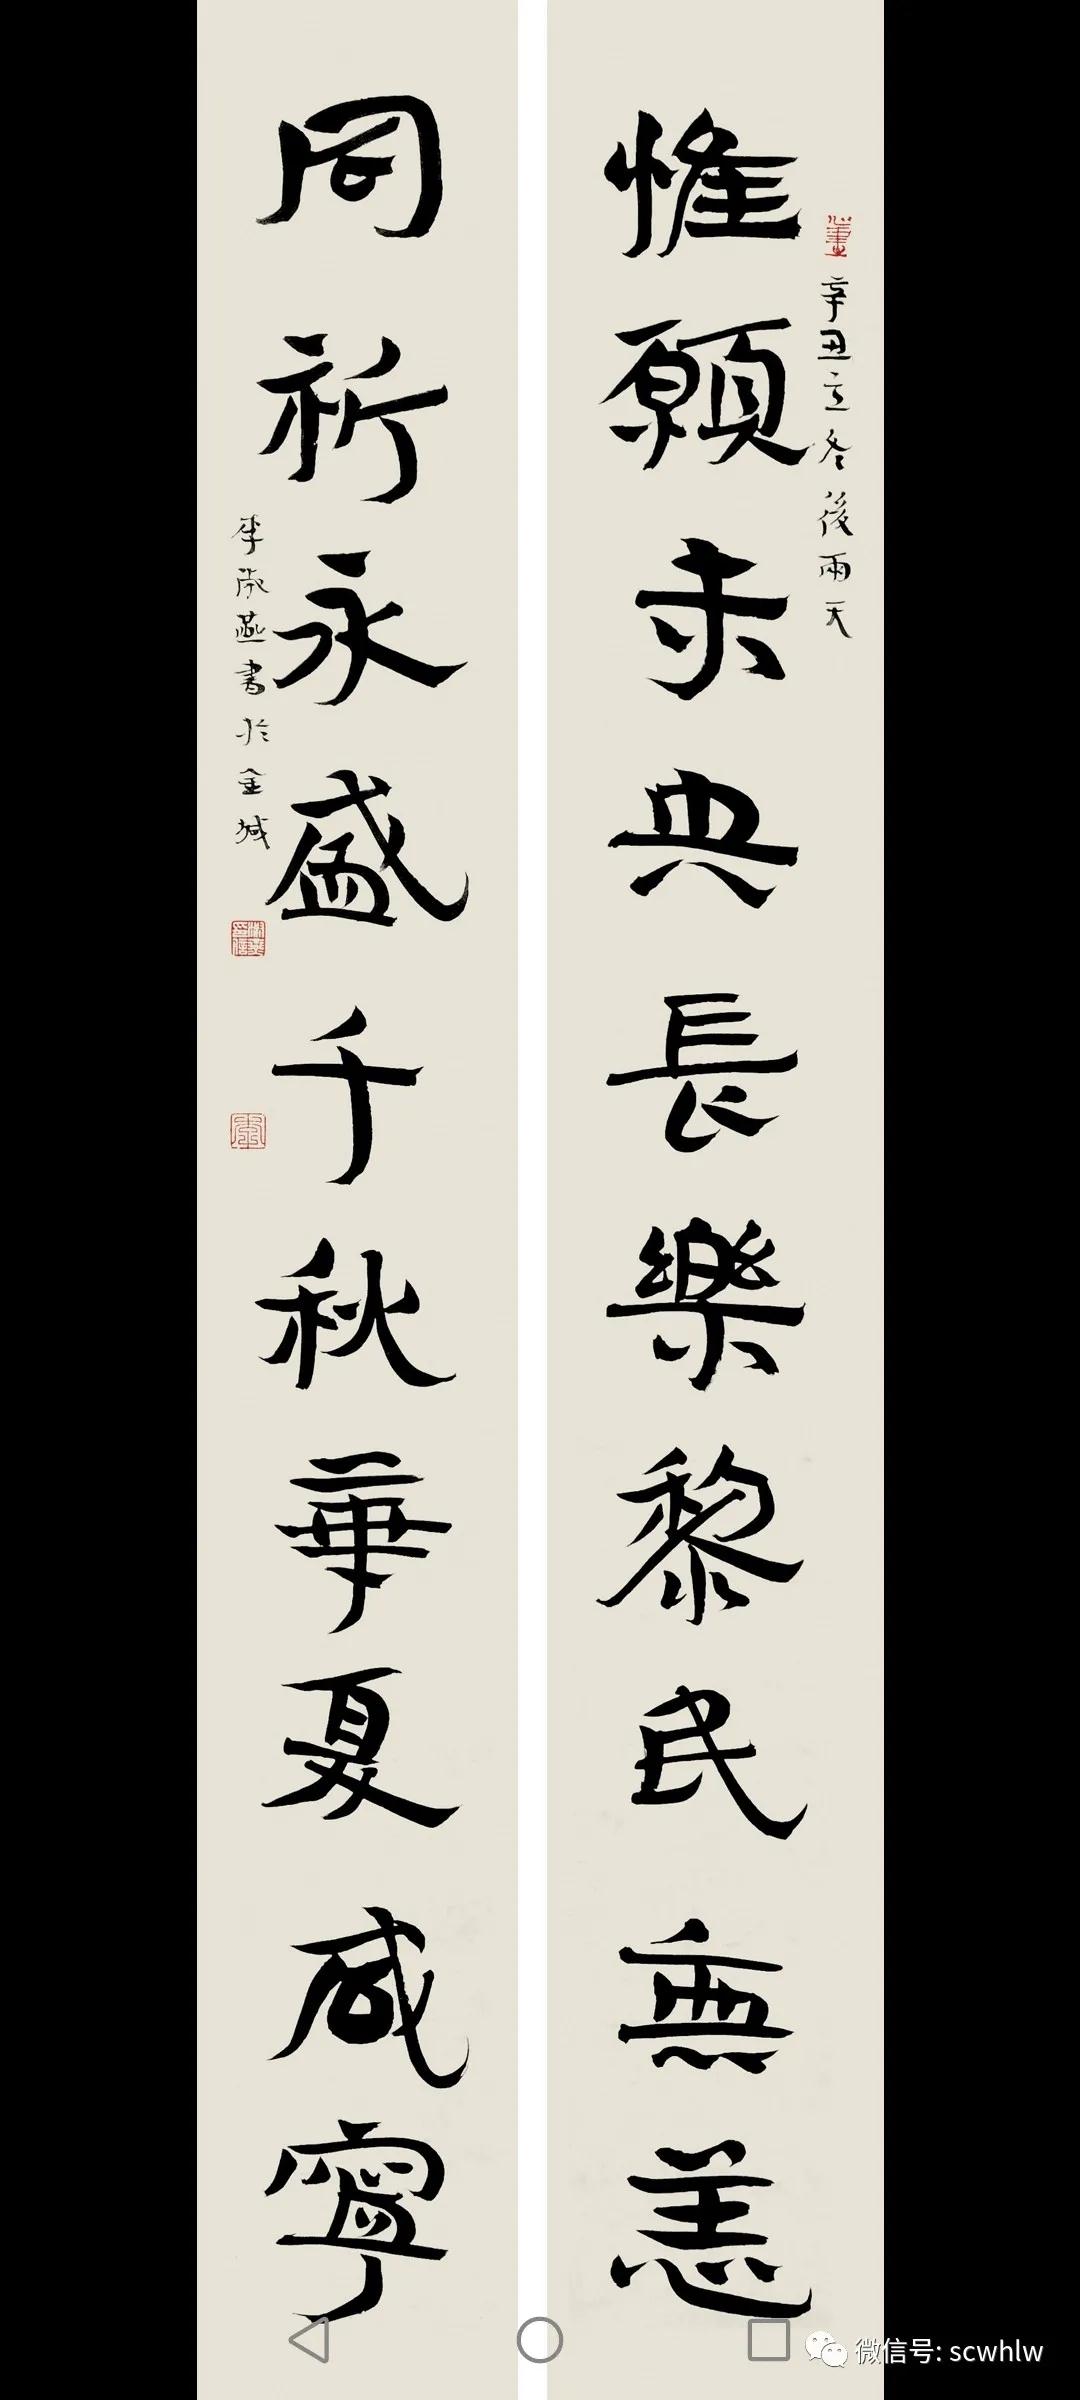 辛丑立冬後雨天
惟願未央長樂黎民無恙
同祈永盛千秋華夏咸寧
李淑燕書於金城
微信号: scwhlw